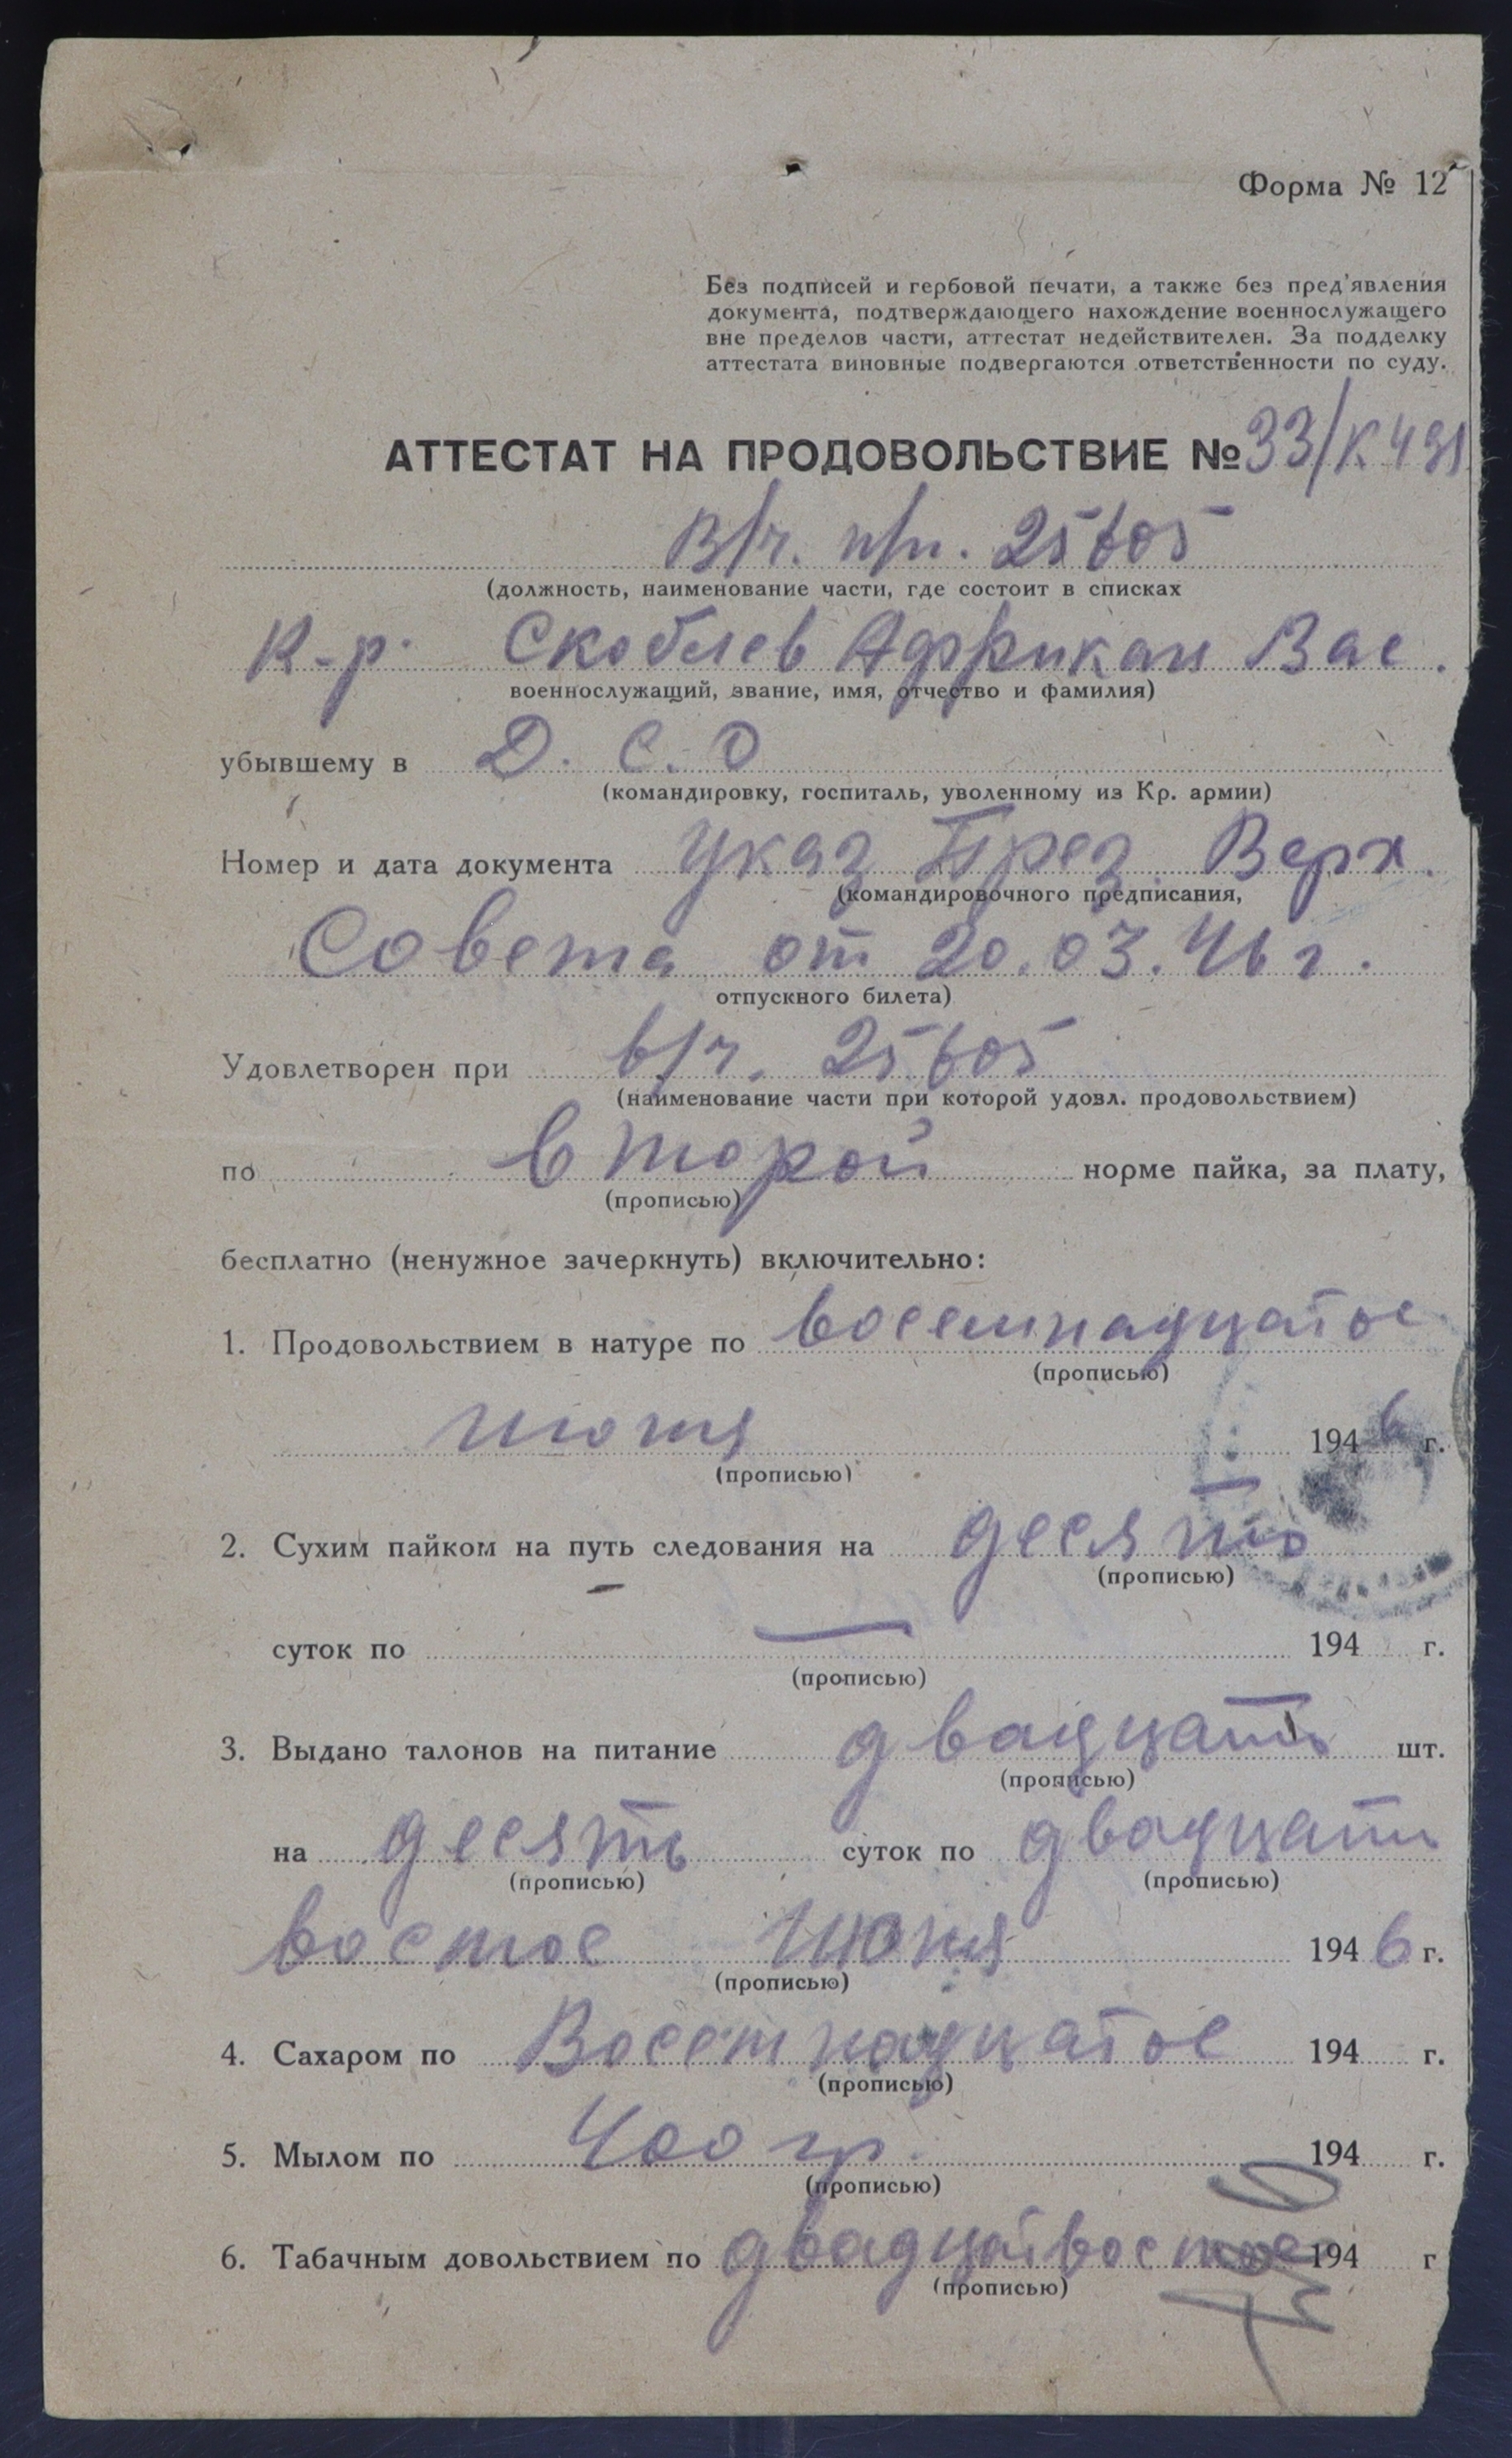 Форма № 12
Без подписей и гербовой печати, а также без пред'явления
документа, подтверждающего нахождение военнослужащего
вне пределов части, аттестат недействителен. За подделку
аттестата виновные подвергаются ответственности по суду.
АТТЕСТАТ НА ПРОДОВОЛЬСТВИЕ № 33/К491
В/ч. п/п. 25605
(должность, наименование части, где состоит в списках
К-р. Скоблев Африкан Вас.
военнослужащий, звание, имя, отчество и фамилия)
убывшему в Д. С. О
(командировку, госпиталь, уволенному из Кр. армии)
Номер и дата документа Указ През. Верх.
(командировочного предписания,
Совета от 20.03.46 г.
отпускного билета)
Удовлетворен при в/ч. 25605
(наименование части при которой удовл. продовольствием)
по второй норме пайка, за плату,
(прописью)
бесплатно (ненужное зачеркнуть) включительно:
1. Продовольствием в натуре по восемнадцатое
(прописью)
июня 1946 г.
(прописью)
2. Сухим пайком на путь следования на десять
(прописью)
суток по — 194 г.
(прописью)
3. Выдано талонов на питание двадцать шт.
(прописью)
на десять суток по двадцать
(прописью) (прописью)
востое июня 1946 г.
(прописью)
4. Сахаром по Восемнадцатое 194 г.
(прописью)
5. Мылом по 400 гр. 194 г.
(прописью)
6. Табачным довольствием по двадцатьвостое 194 г
(прописью)